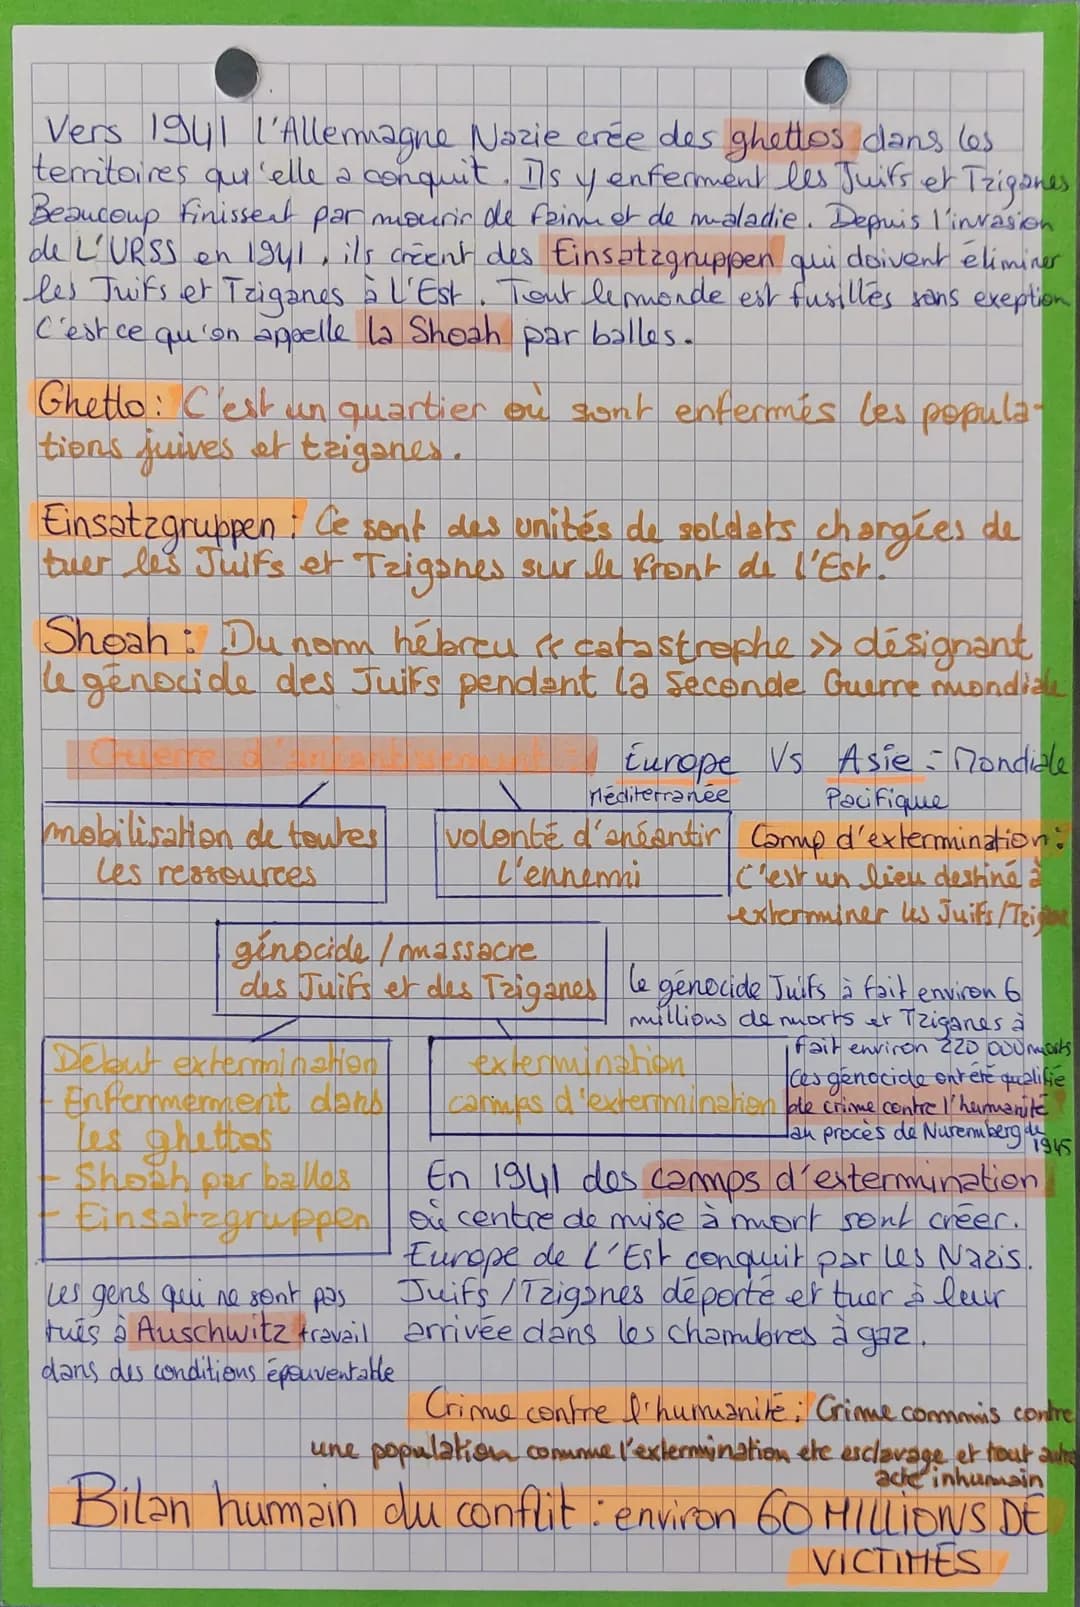 Vers 1941 l'Allemagne Nazie crée des ghettos dans les
territoires qu'elle a conquit. Ils y enferment les Juifs et Tziganes
Beaucoup finissent par mourir de faim et de maladie. Depuis l'invasion
de L'URSS en 1941, ils créent des Einsatzgruppen qui doivent éliminer
les Juifs et Tziganes à L'Est. Tout le monde est fusillés sans exeption
C'est ce qu'on appelle la Shoah par balles.
Ghetto : C'est un quartier où sont enfermés les popula-
tions juives et tziganes.
Einsatzgruppen : Ce sont des unités de soldats chargées de
tuer les Juifs et Tziganes sur le front de l'Est.
Shoah : Du nom hébreu « catastrophe » désignant
le génocide des Juifs pendant la Seconde Guerre mondiale
Guerre d'anéantissement :
Europe Vs Asie = Mondiale
Méditerranée Pacifique
mobilisation de toutes
les ressources
volonté d'anéantir
l'ennemi
Camp d'extermination :
C'est un lieu destiné à
exterminer les Juifs/Tzigane
génocide / massacre
des Juifs et des Tziganes
le génocide Juifs à fait environ 6
millions de morts et Tziganes à
fait environ 220 000 morts
Ces génocide ont été qualifié
de crime contre l'humanité
au procès de Nuremberg de
1945
Début extermination
- Enfermement dans
les ghettos
- Shoah par balles
- Einsatzgruppen
extermination
camps d'extermination
En 1941 des camps d'estermination
où centre de mise à mort sont créer.
Europe de L'Est conquit par les Nazis.
Juifs /Tziganes déporté et tuer à leur
arrivée dans les chambres à gaz.
Les gens qui ne sont pas
tués à Auschwitz travail
dans des conditions épouventable
Crime contre l'humanité : Crime commis contre
une population comme l'extermination etc esclavage et tout autre
acte inhumain
Bilan humain du conflit : environ 60 MILLIONS DE
VICTIMES